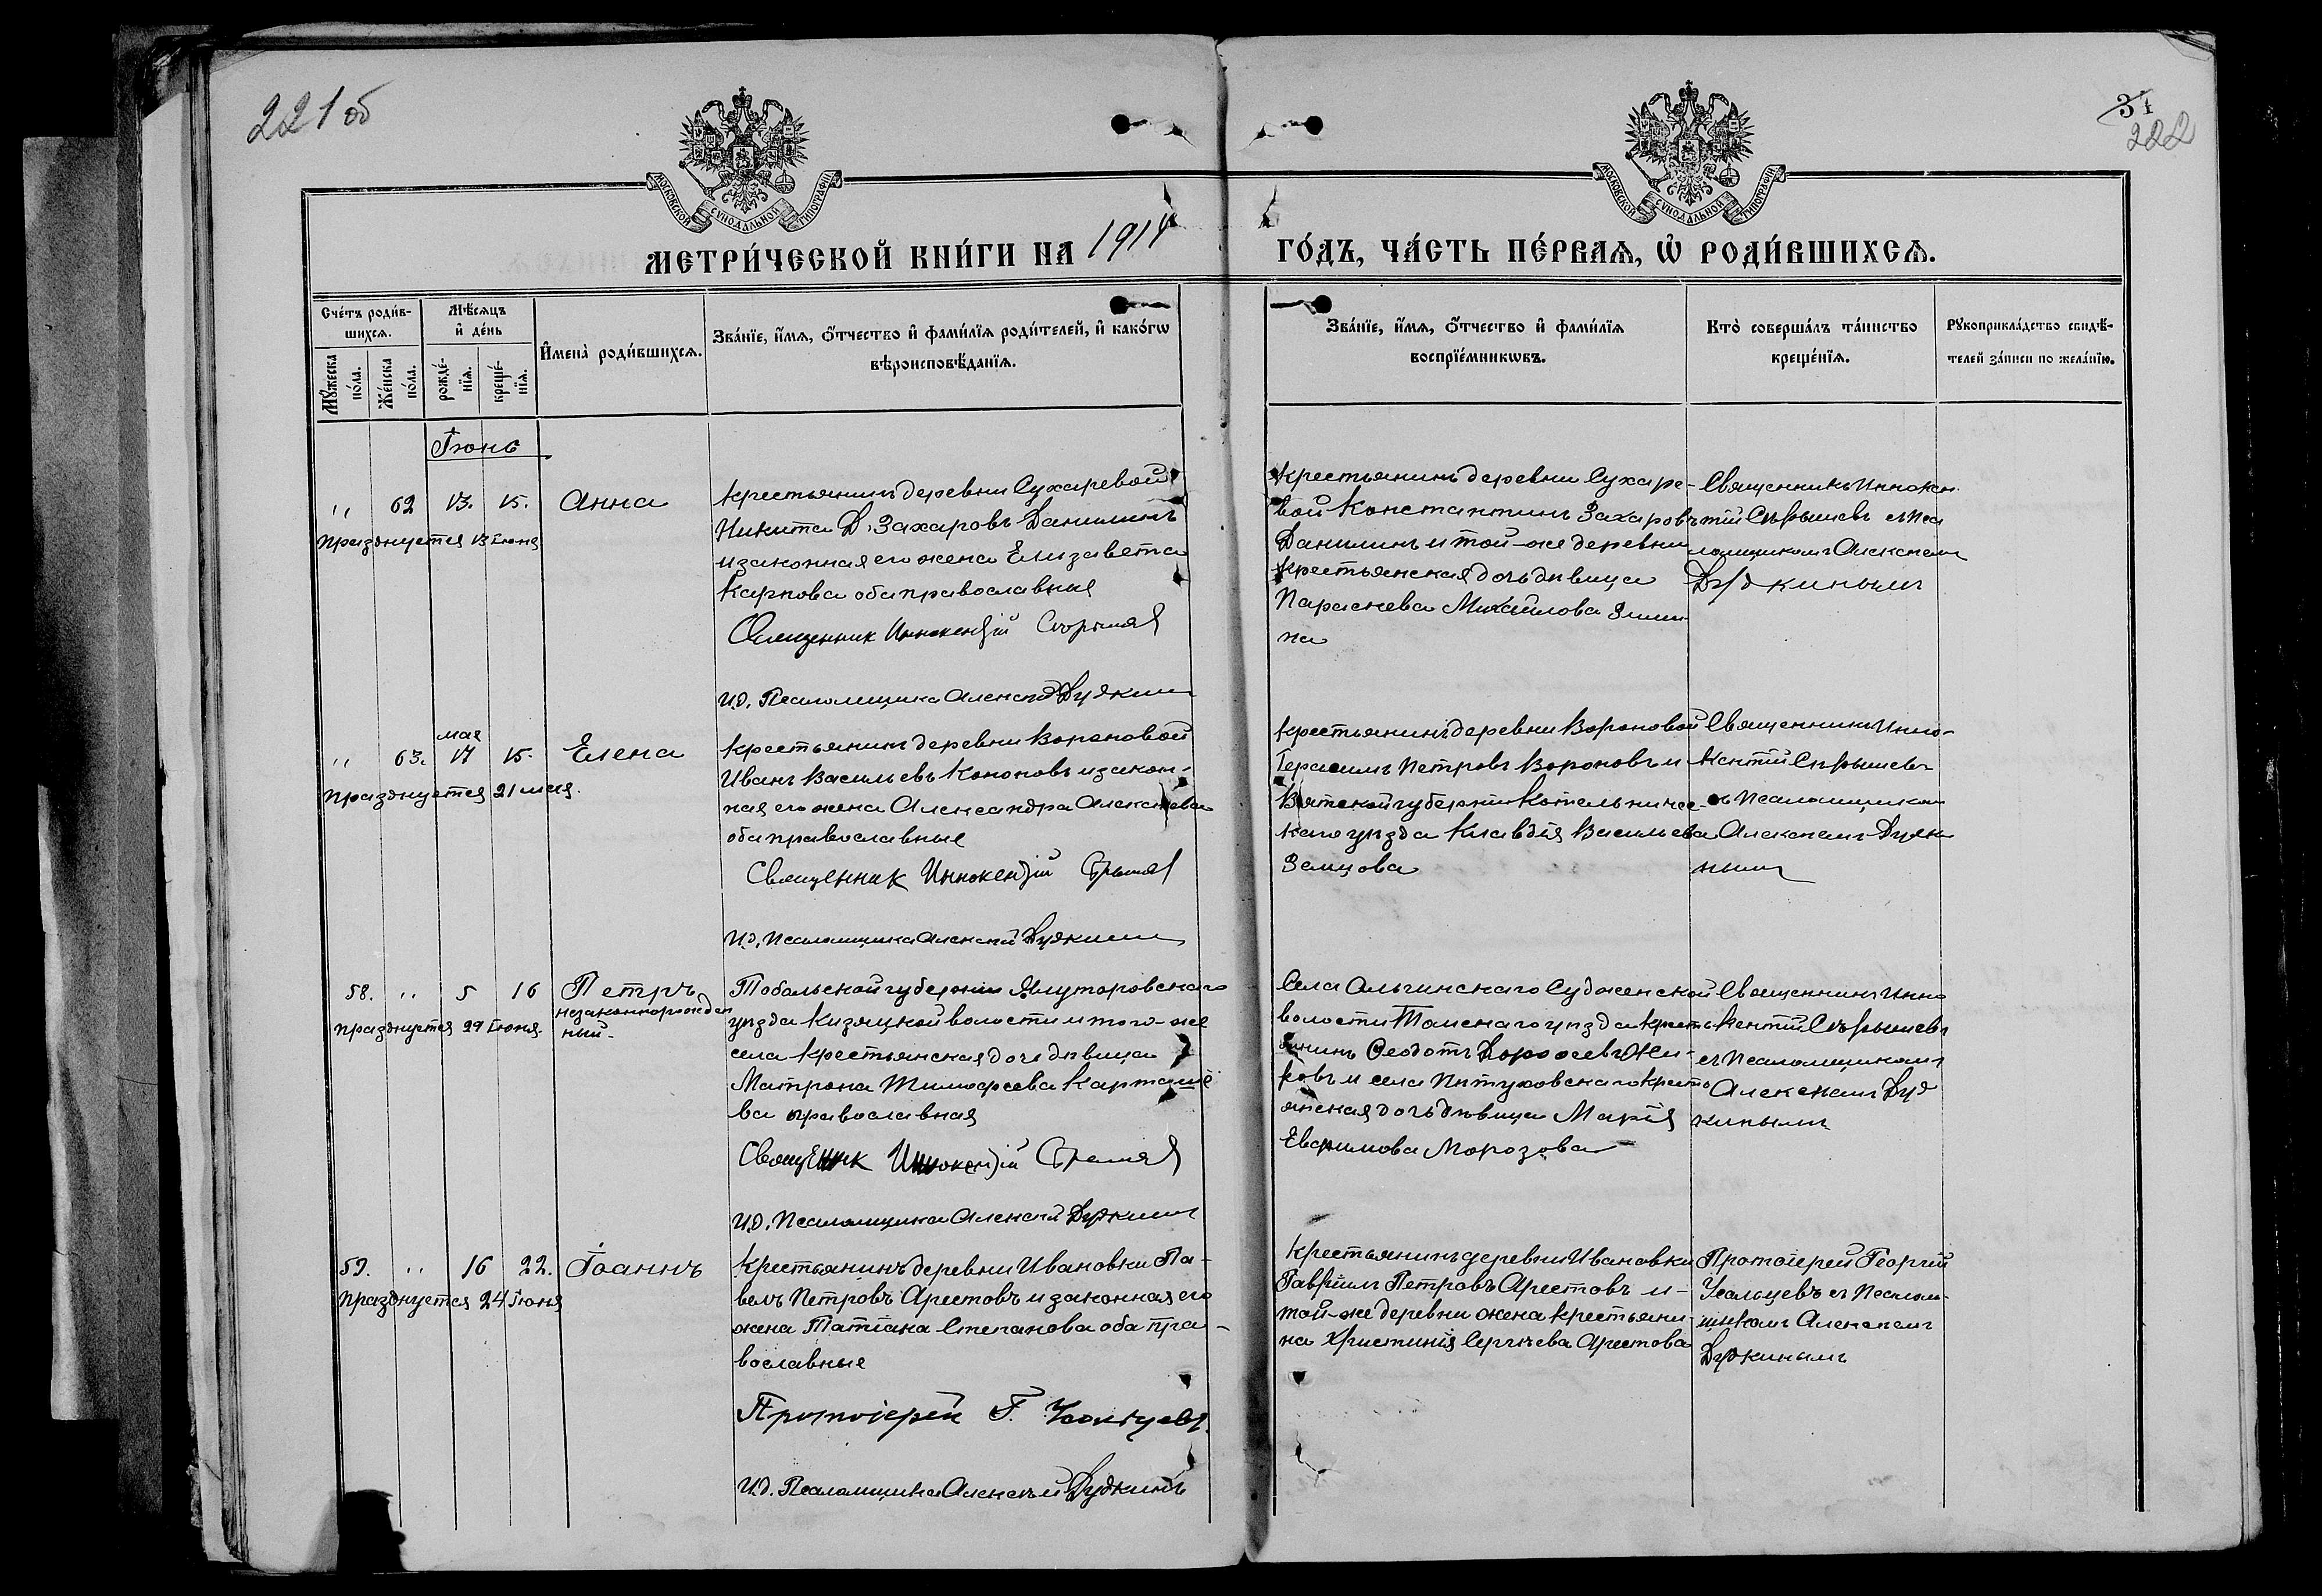 221 об
31
222
МОСКОВСКОЙ СѴНОДАЛЬНОЙ ТИПОГРАФІИ
МОСКОВСКОЙ СѴНОДАЛЬНОЙ ТИПОГРАФІИ
МЕТРИ́ЧЕСКОЙ КНИ́ГИ НА 1914
ГО́ДЪ, ЧА́СТЬ ПЕ́РВАѦ, Ѡ҆ РОДИ́ВШИХСѦ.
Сче́тъ роди́в-
шихсѧ.
Мѣ́сѧцъ
и҆ де́нь
Мꙋ́жеска
по́ла.
Же́нска
по́ла.
рожде́-
нїѧ.
креще́-
нїѧ.
И҆мена̀ роди́вшихсѧ.
Зва́нїе, и҆́мѧ, ѻ҆́тчество и҆ фами́лїѧ роди́телей, и҆ како́гѡ
вѣроисповѣ́данїѧ.
Зва́нїе, и҆́мѧ, ѻ҆́тчество и҆ фами́лїѧ
воспрїе́мникѡвъ.
Кто̀ соверша́лъ та́инство
креще́нїѧ.
Рꙋкоприкла́дство свидѣ́-
телей за́писи по жела́нїю.
Іюнь
,, 62 13. 15. Анна
Празднуется 13 Іюня
Крестьянинъ деревни Сухаревой
Никита Д. Захаровъ Данилинъ
и законная его жена Елизавета
Карпова оба православные
Священник Иннокентій
И.д. Псаломщика Алексѣй Дудкинъ
Крестьянинъ деревни Сухаре-
вой Константинъ Захаровъ
Данилинъ и той-же деревни
крестьянская дочь дѣвица
Параскева Михаилова Зими-
на
Священникъ Иннокен-
тій Сѣрышевъ съ Пса
ломщикомъ Алексѣемъ
Дудкинымъ
,, 63. мая 17 15. Елена
Празднуется 21 мая.
Крестьянинъ деревни Вороновой
Иванъ Васильевъ Кононовъ и закон-
ная его жена Александра Алексѣева
оба православные
Священник Иннокентій
И.д. Псаломщика Алексѣй Дудкинъ
Крестьянинъ деревни Вороновой
Герасимъ Петровъ Вороновъ и
Вятской губерніи Котельничес-
каго уѣзда Клавдія Васильева
Земцова
Священникъ Инно-
кентій Сѣрышевъ
съ Псаломщикомъ
Алексѣемъ Дудки
нымъ
58. ,, 5 16 Петръ
незаконнорожден
ный.
Празднуется 29 Іюня.
Тобольской губерніи Ялуторовскаго
уѣзда Кизацкой волости и того-же
села крестьянская дочь дѣвица
Матрона Тимофеева Карташё
ва православная
Священник Иннокентій
И.д. Псаломщика Алексѣй Дудкинъ
Села Ольгинскаго Судженской
волости Томскаго уѣзда кресть-
янинъ Ѳеодотъ Дороѳеевъ
и села Пѣтуховскаго кресть
янская дочь дѣвица Марія
Евфимова Морозова
Священникъ Инно
кентій Сѣрышевъ
съ Псаломщикомъ
Алексѣемъ Дуд
кинымъ
59. ,, 16 22. Іоаннъ
Празднуется 24 Іюня
Крестьянинъ деревни Ивановки Па-
велъ Петровъ Арестовъ и законная его
жена Татіана Степанова оба пра-
вославные
Протоіерей Г. Усольцевъ.
И.д. Псаломщика Алексѣй Дудкинъ
Крестьянинъ деревни Ивановки
Гавріилъ Петровъ Арестовъ и-
той-же деревни жена крестьяни-
на Христинія Сергѣева Арестова
Протоіерей Георгій
Усольцевъ съ Псалом-
щикомъ Алексѣемъ
Дудкинымъ